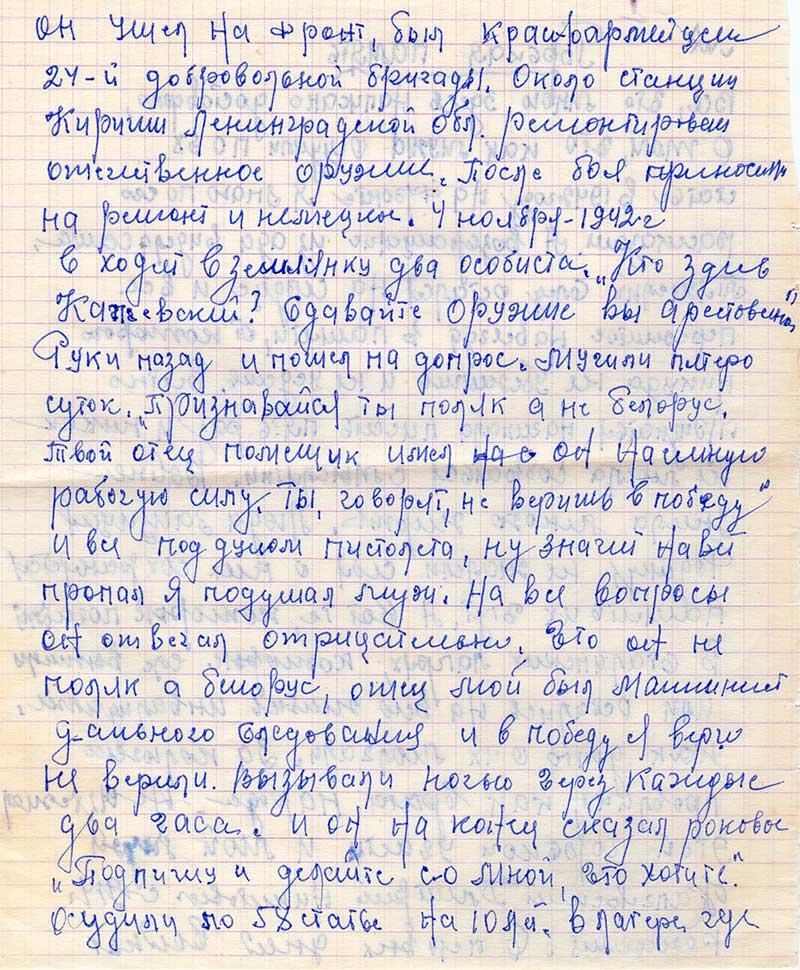 он ушел на фронт, был красноармейцем
24-й добровольной бригады. Около станции
Кириши Ленинградской обл. ремонтировал
отечественное оружие. После боя приносили
на ремонт и немецкое. 4 ноября-1942 г
входят в землянку два особиста. „Кто здесь
Сдавайте оружие вы арестованы"
Руки назад и пошел на допрос. Мучили пятеро
суток. „Признавайся ты поляк а не белорус,
твой отец помещик имел он наемную
рабочую силу. Ты, говорят, не веришь в победу"
и все под дулом пистолета, ну значит
пропал я подумал муж. На все вопросы
он отвечал отрицательно. Это он не
поляк а белорус, отец мой был машинист
дального следования и в победу я верю
не верили. Вызывали ночью через каждые
два часа. и он на конец сказал роковое
„Подпишу и делайте со мной, что хотите".
Осудили по 58 статье на 10 лет. в лагере где